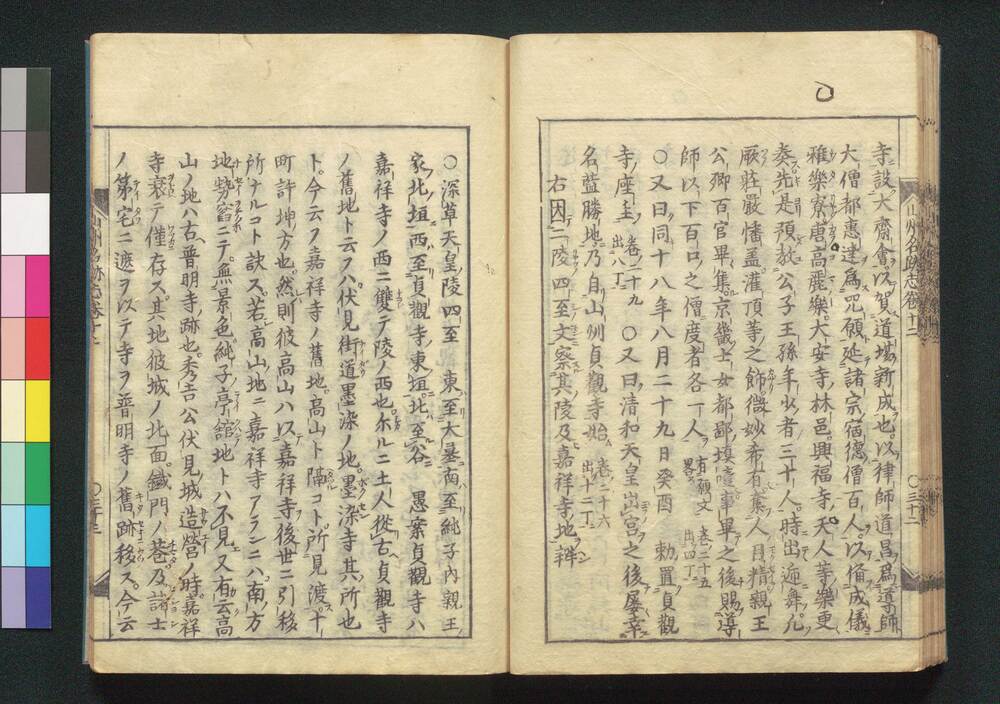 寺設大齋會以賀道場新成也以律師道昌爲導師
大僧都惠達爲咒願延諸宗宿德僧百人以備威儀
雅樂寮唐高麗樂大安寺林邑興福寺天人等樂更
奏先是預敎公子王孫年少者三十人時出遞舞凡
厥莊嚴幡盖灌頂等之飾微妙希有集人目精親王
公卿百官畢集京畿士女都鄙塡噎事畢之後賜導
師以下下百口之僧度者各一人有願文畧卷二十五出四丁
○又曰同十八年八月二十九日癸酉勅置貞觀
寺座主卷二十九出八丁○又曰清和天皇出宮之後屢幸
名藍勝地乃自山州貞觀寺始卷三十六出十三丁
右因二陵四至文察其陵及嘉祥寺地辨
山州名跡志卷十二
○三十二
○深草天皇陵四至東至大墓南至純子內親王
家北垣西至貞觀寺東垣北至谷愚案貞觀寺ハ
嘉祥寺ノ西ニ雙テ陵ノ西也尓ルニ土人從古貞觀寺
ノ舊地ト云フハ伏見街道墨染ノ地墨染寺其所也
ト今云フ嘉祥寺ノ舊地高山ト隔コト所見渡十
町許坤方也然則彼高山ハ以嘉祥寺後世ニ引移
所ナルコト訣ス若高山地ニ嘉祥寺アランニハ南方
地勢窟ニテ無景色純子亭舘地トハ不見又有云高
山ノ地ハ古普明寺跡也秀吉公伏見城造營ノ時嘉祥
寺衰テ僅存ス其地彼城ノ北面鐵門ノ巷及諸士
ノ第宅ニ遮ヲ以テ寺ヲ普明寺ノ舊跡移ス今云
山州名跡志卷十二
○三十三